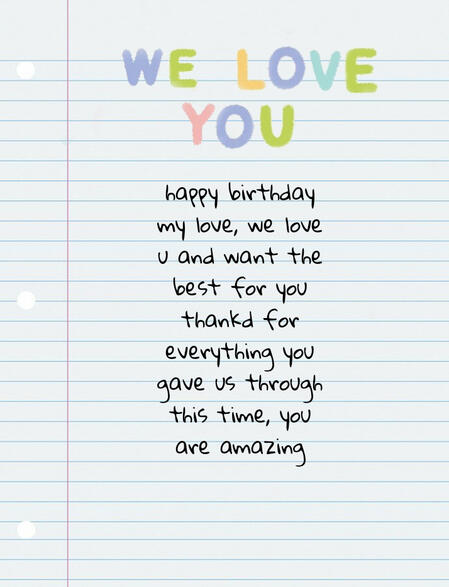 WE LOVE
YOU
happy birthday
my love, we love
u and want the
best for you
thankd for
everything you
gave us through
this time, you
are amazing